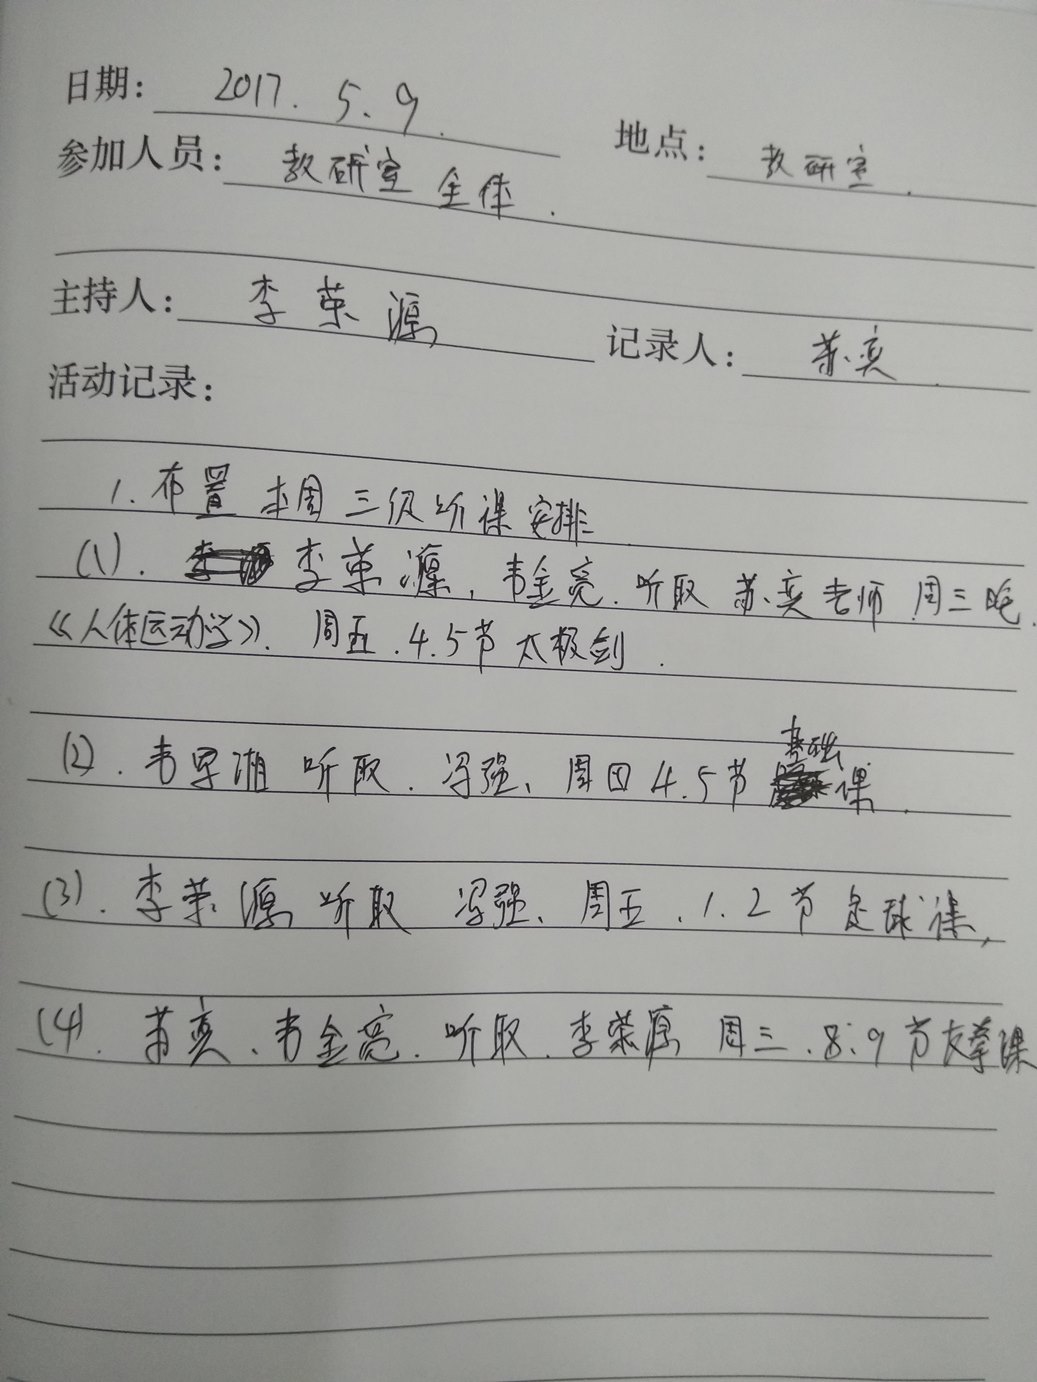 日期: 2017. 5. 9.
参加人员: 教研室 全体. 地点: 教研室.
主持人: 李荣源 记录人: 苏奕
活动记录:
1. 布置 本周 三级听课安排
(1). 李荣源, 韦金亮. 听取 苏奕老师 周三晚.
《人体运动学》. 周五. 4.5节 太极剑.
(2). 韦 湘 听取. 冯强、周四 4.5节 基础课.
(3). 李荣源 听取 冯强、周五. 1.2节 足球课,
(4). 苏奕、韦金亮. 听取. 李荣源 周三. 8.9节 拳课